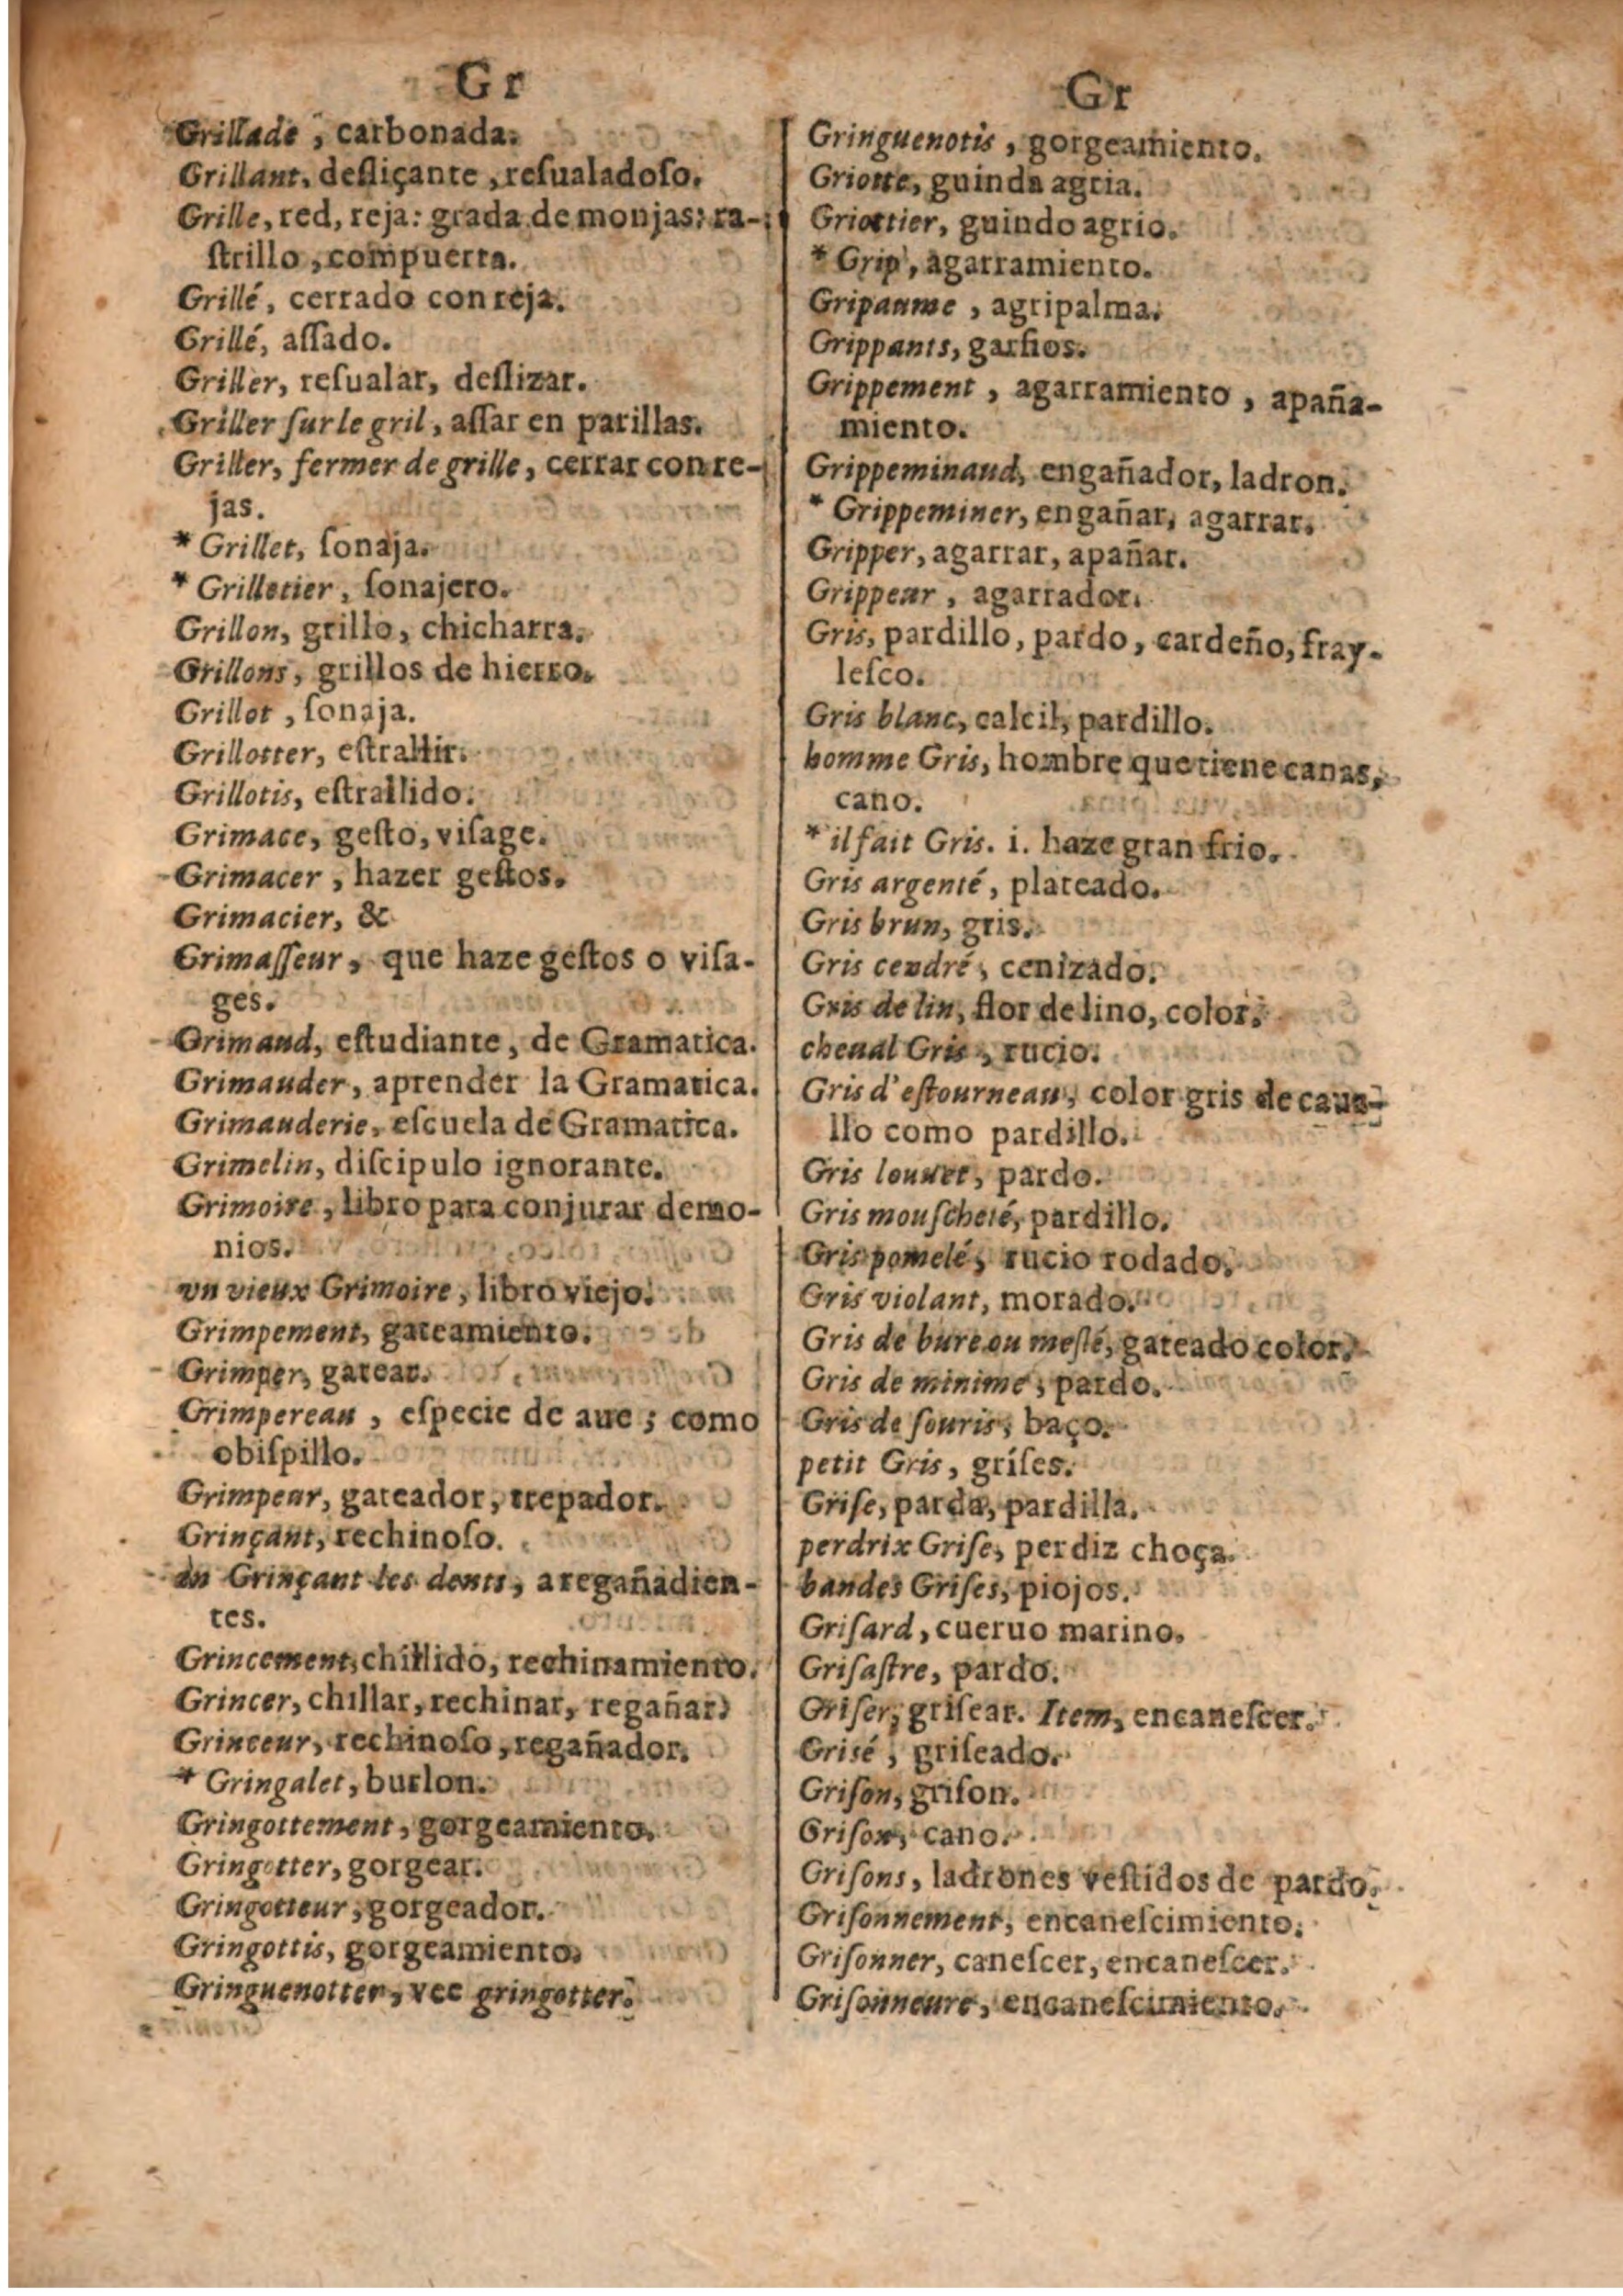 Gr
Grillade, carbonada.
Grillant, deſliçante, reſualadoſo.
Grille, red, reja: grada de monjas: ra-
ſtrillo, compuerta.
Grillé, cerrado con reja.
Grillé, aſſado.
Griller, reſualar, deſlizar.
Griller ſur le gril, aſſar en parillas.
Griller, fermer de grille, cerrar con re-
jas.
* Grillet, ſonaja.
* Grilletier, ſonajero.
Grillon, grillo, chicharra.
Grillons, grillos de hierro.
Grillot, ſonaja.
Grillotter, eſtrallir.
Grillotis, eſtrallido.
Grimace, geſto, viſage.
Grimacer, hazer geſtos.
Grimacier, &
Grimaſſeur, que haze geſtos o viſa-
ges.
Grimaud, eſtudiante, de Gramatica.
Grimauder, aprender la Gramatica.
Grimauderie, eſcuela de Gramatica.
Grimelin, diſcipulo ignorante.
Grimoire, libro para conjurar demo-
nios.
vn vieux Grimoire, libro viejo.
Grimpement, gateamiento.
Grimper, gatear.
Grimpereau, eſpecie de aue; como
obiſpillo.
Grimpeur, gateador, trepador.
Grinçant, rechinoſo.
en Grinçant les dents, a regañadien-
tes.
Grincement, chillido, rechinamiento.
Grincer, chillar, rechinar, regañar.
Grinceur, rechinoſo, regañador.
* Gringalet, burlon.
Gringottement, gorgeamiento.
Gringotter, gorgear.
Gringotteur, gorgeador.
Gringottis, gorgeamiento.
Gringuenotter, vee gringotter.
Gr
Gringuenotis, gorgeamiento.
Griotte, guinda agria.
Griottier, guindo agrio.
* Grip, agarramiento.
Gripaume, agripalma.
Grippants, garfios.
Grippement, agarramiento, apaña-
miento.
Grippeminaud, engañador, ladron.
* Grippeminer, engañar, agarrar.
Gripper, agarrar, apañar.
Grippeur, agarrador.
Gris, pardillo, pardo, cardeño, fray-
leſco.
Gris blanc, calcil, pardillo.
homme Gris, hombre que tiene canas,
cano.
* il fait Gris. i. haze gran frio.
Gris argenté, plateado.
Gris brun, gris.
Gris cendré, cenizado.
Gris de lin, flor de lino, color.
cheual Gris, rucio.
Gris d'eſtourneau, color gris de caua-
llo como pardillo.
Gris louuet, pardo.
Gris mouſcheté, pardillo.
Gris pomelé, rucio rodado.
Gris violant, morado.
Gris de bure ou meſlé, gateado color.
Gris de minime, pardo.
Gris de ſouris, baço.
petit Gris, griſes.
Griſe, parda, pardilla.
perdrix Griſe, perdiz choça.
bandes Griſes, piojos.
Griſard, cueruo marino.
Griſaſtre, pardo.
Griſer, griſear. Item, encaneſcer.
Grisé, griſeado.
Griſon, griſon.
Griſon, cano.
Griſons, ladrones veſtidos de pardo.
Griſonnement, encaneſcimiento.
Griſonner, caneſcer, encaneſcer.
Griſonneure, encaneſcimiento.